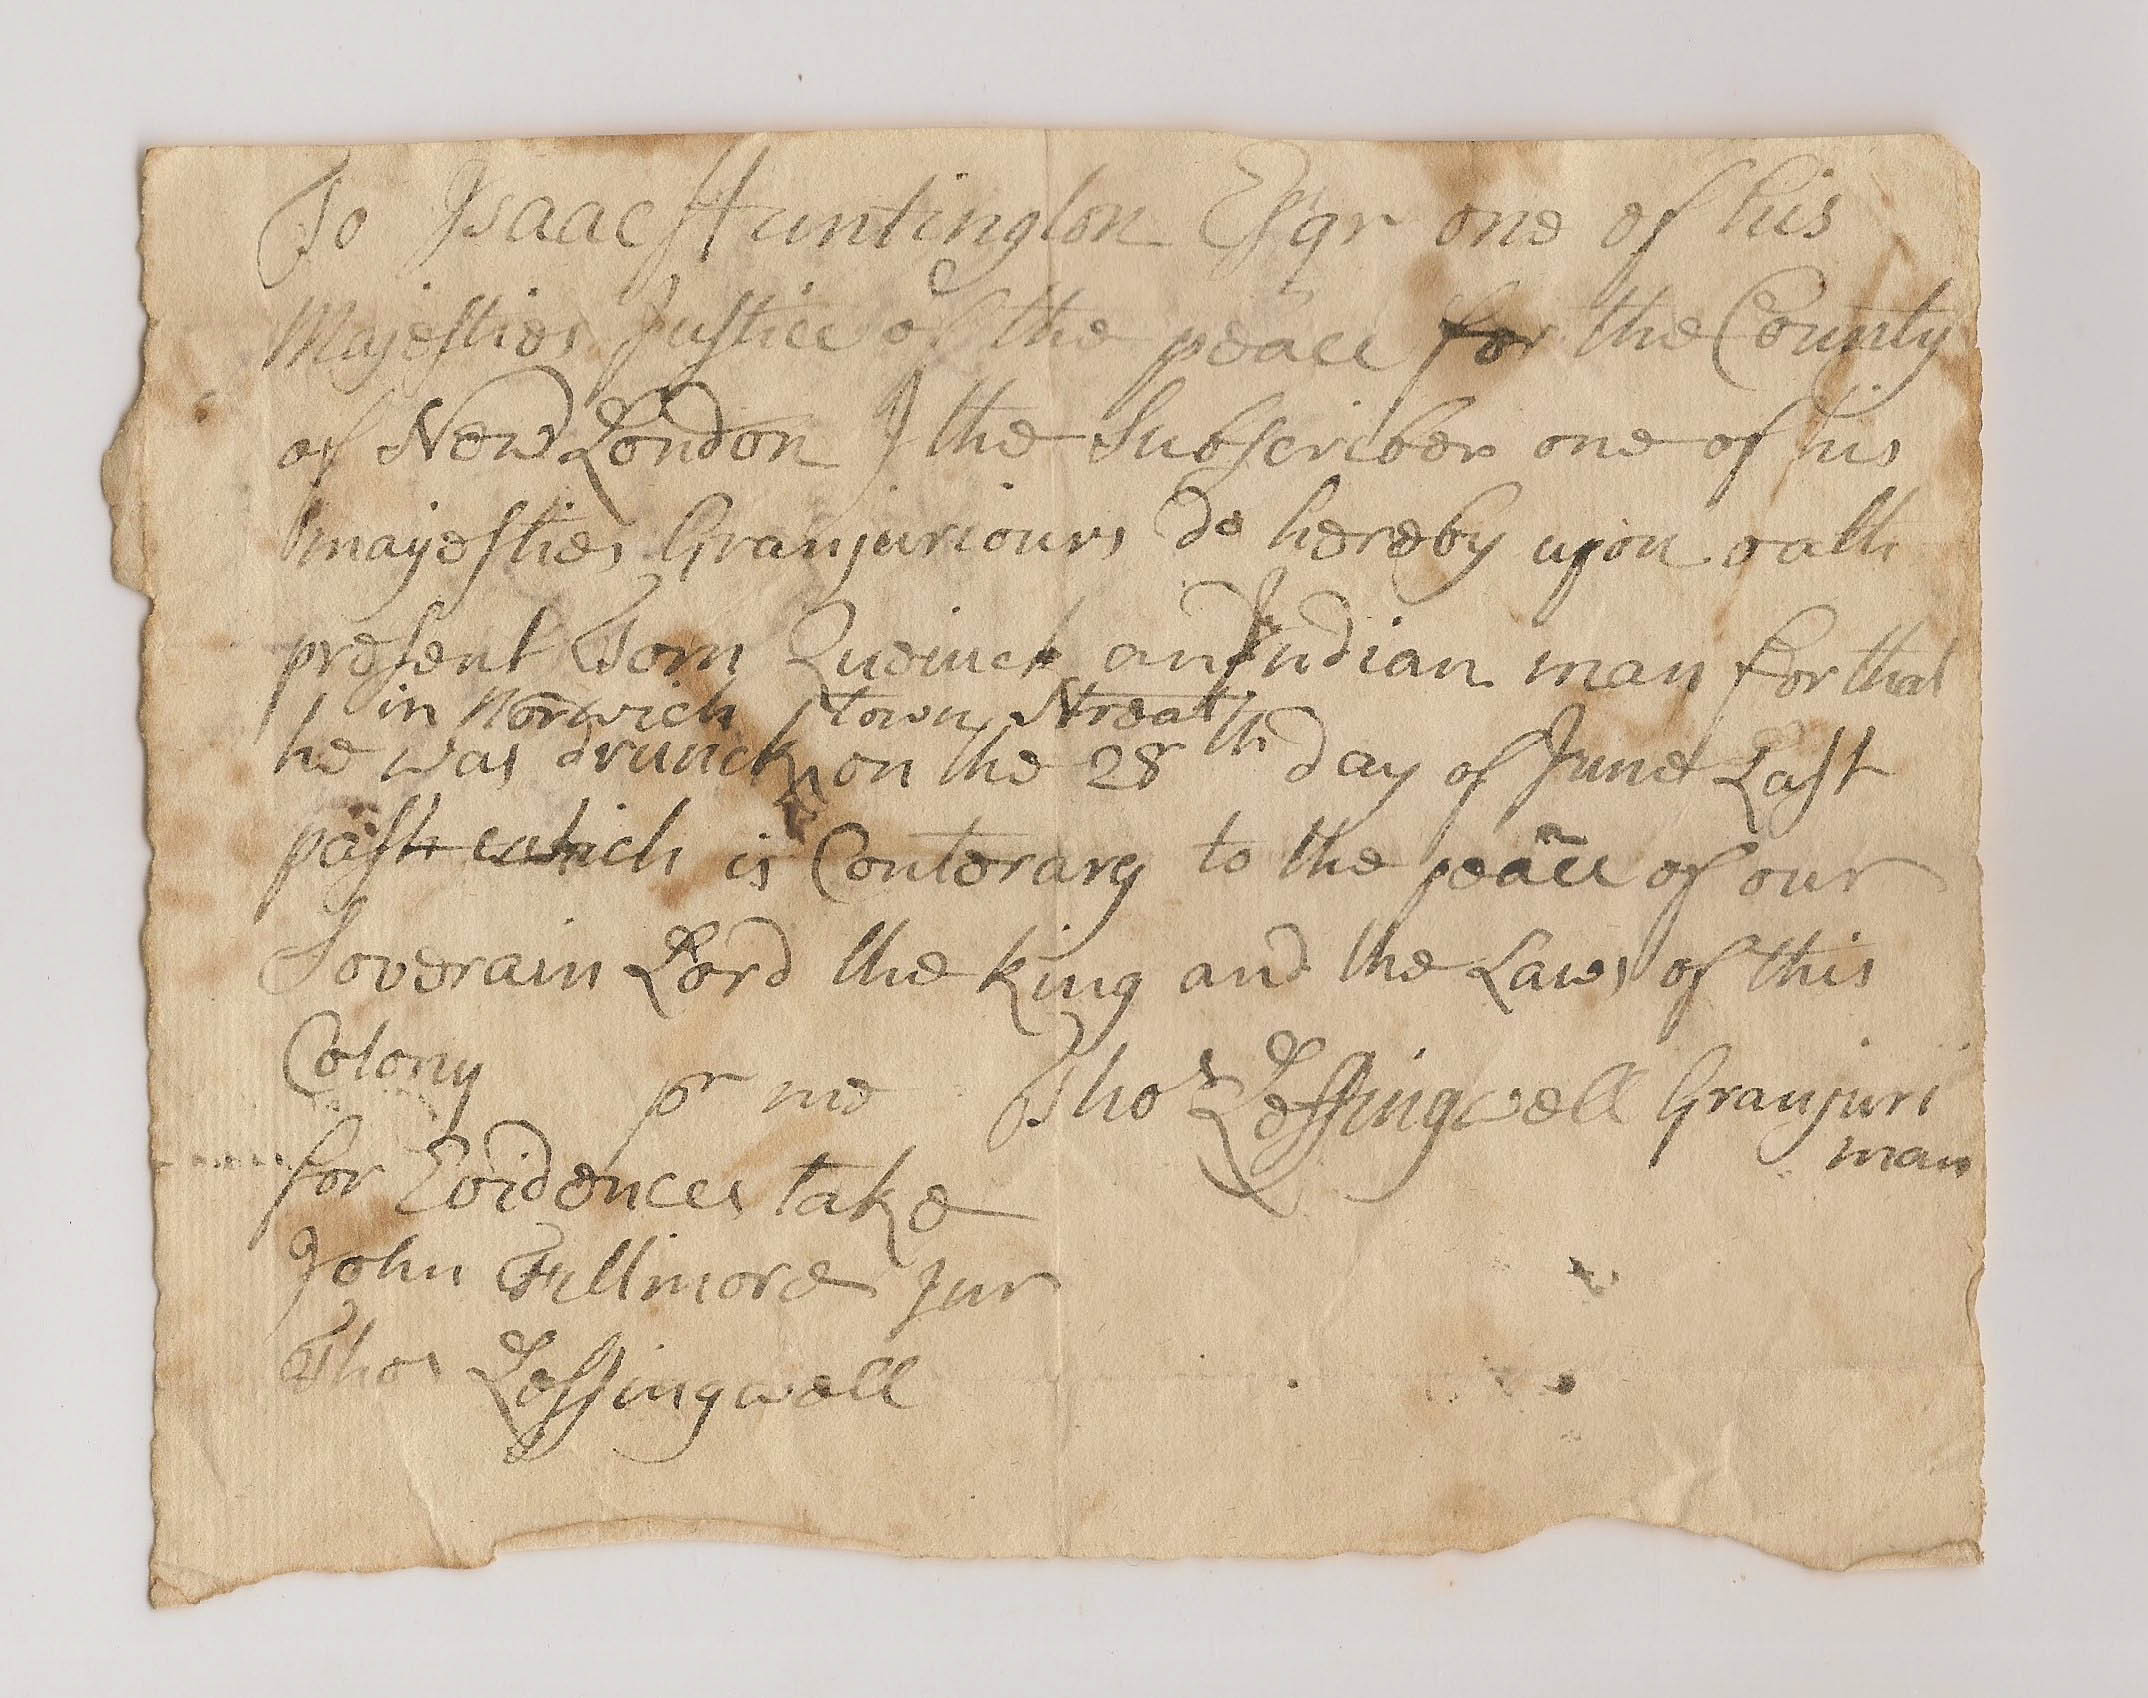 To Isaac Huntington Esqr one of his
Majesties Justice of the peace for the County
of New London I the Subscriber one of his
majesties Granjuriours do hereby upon oath
present Tom Queinck an Indian man for that
in Norwich town Streat
he was drunck on the 28th day of June Last
past which is Conterary to the peace of our
Soverain Lord the King and the Laws of this
Colony
pr me Thos Leffingwell Granjuri
man
for Evidences take
John Fillmore Jur
Thos Leffingwell